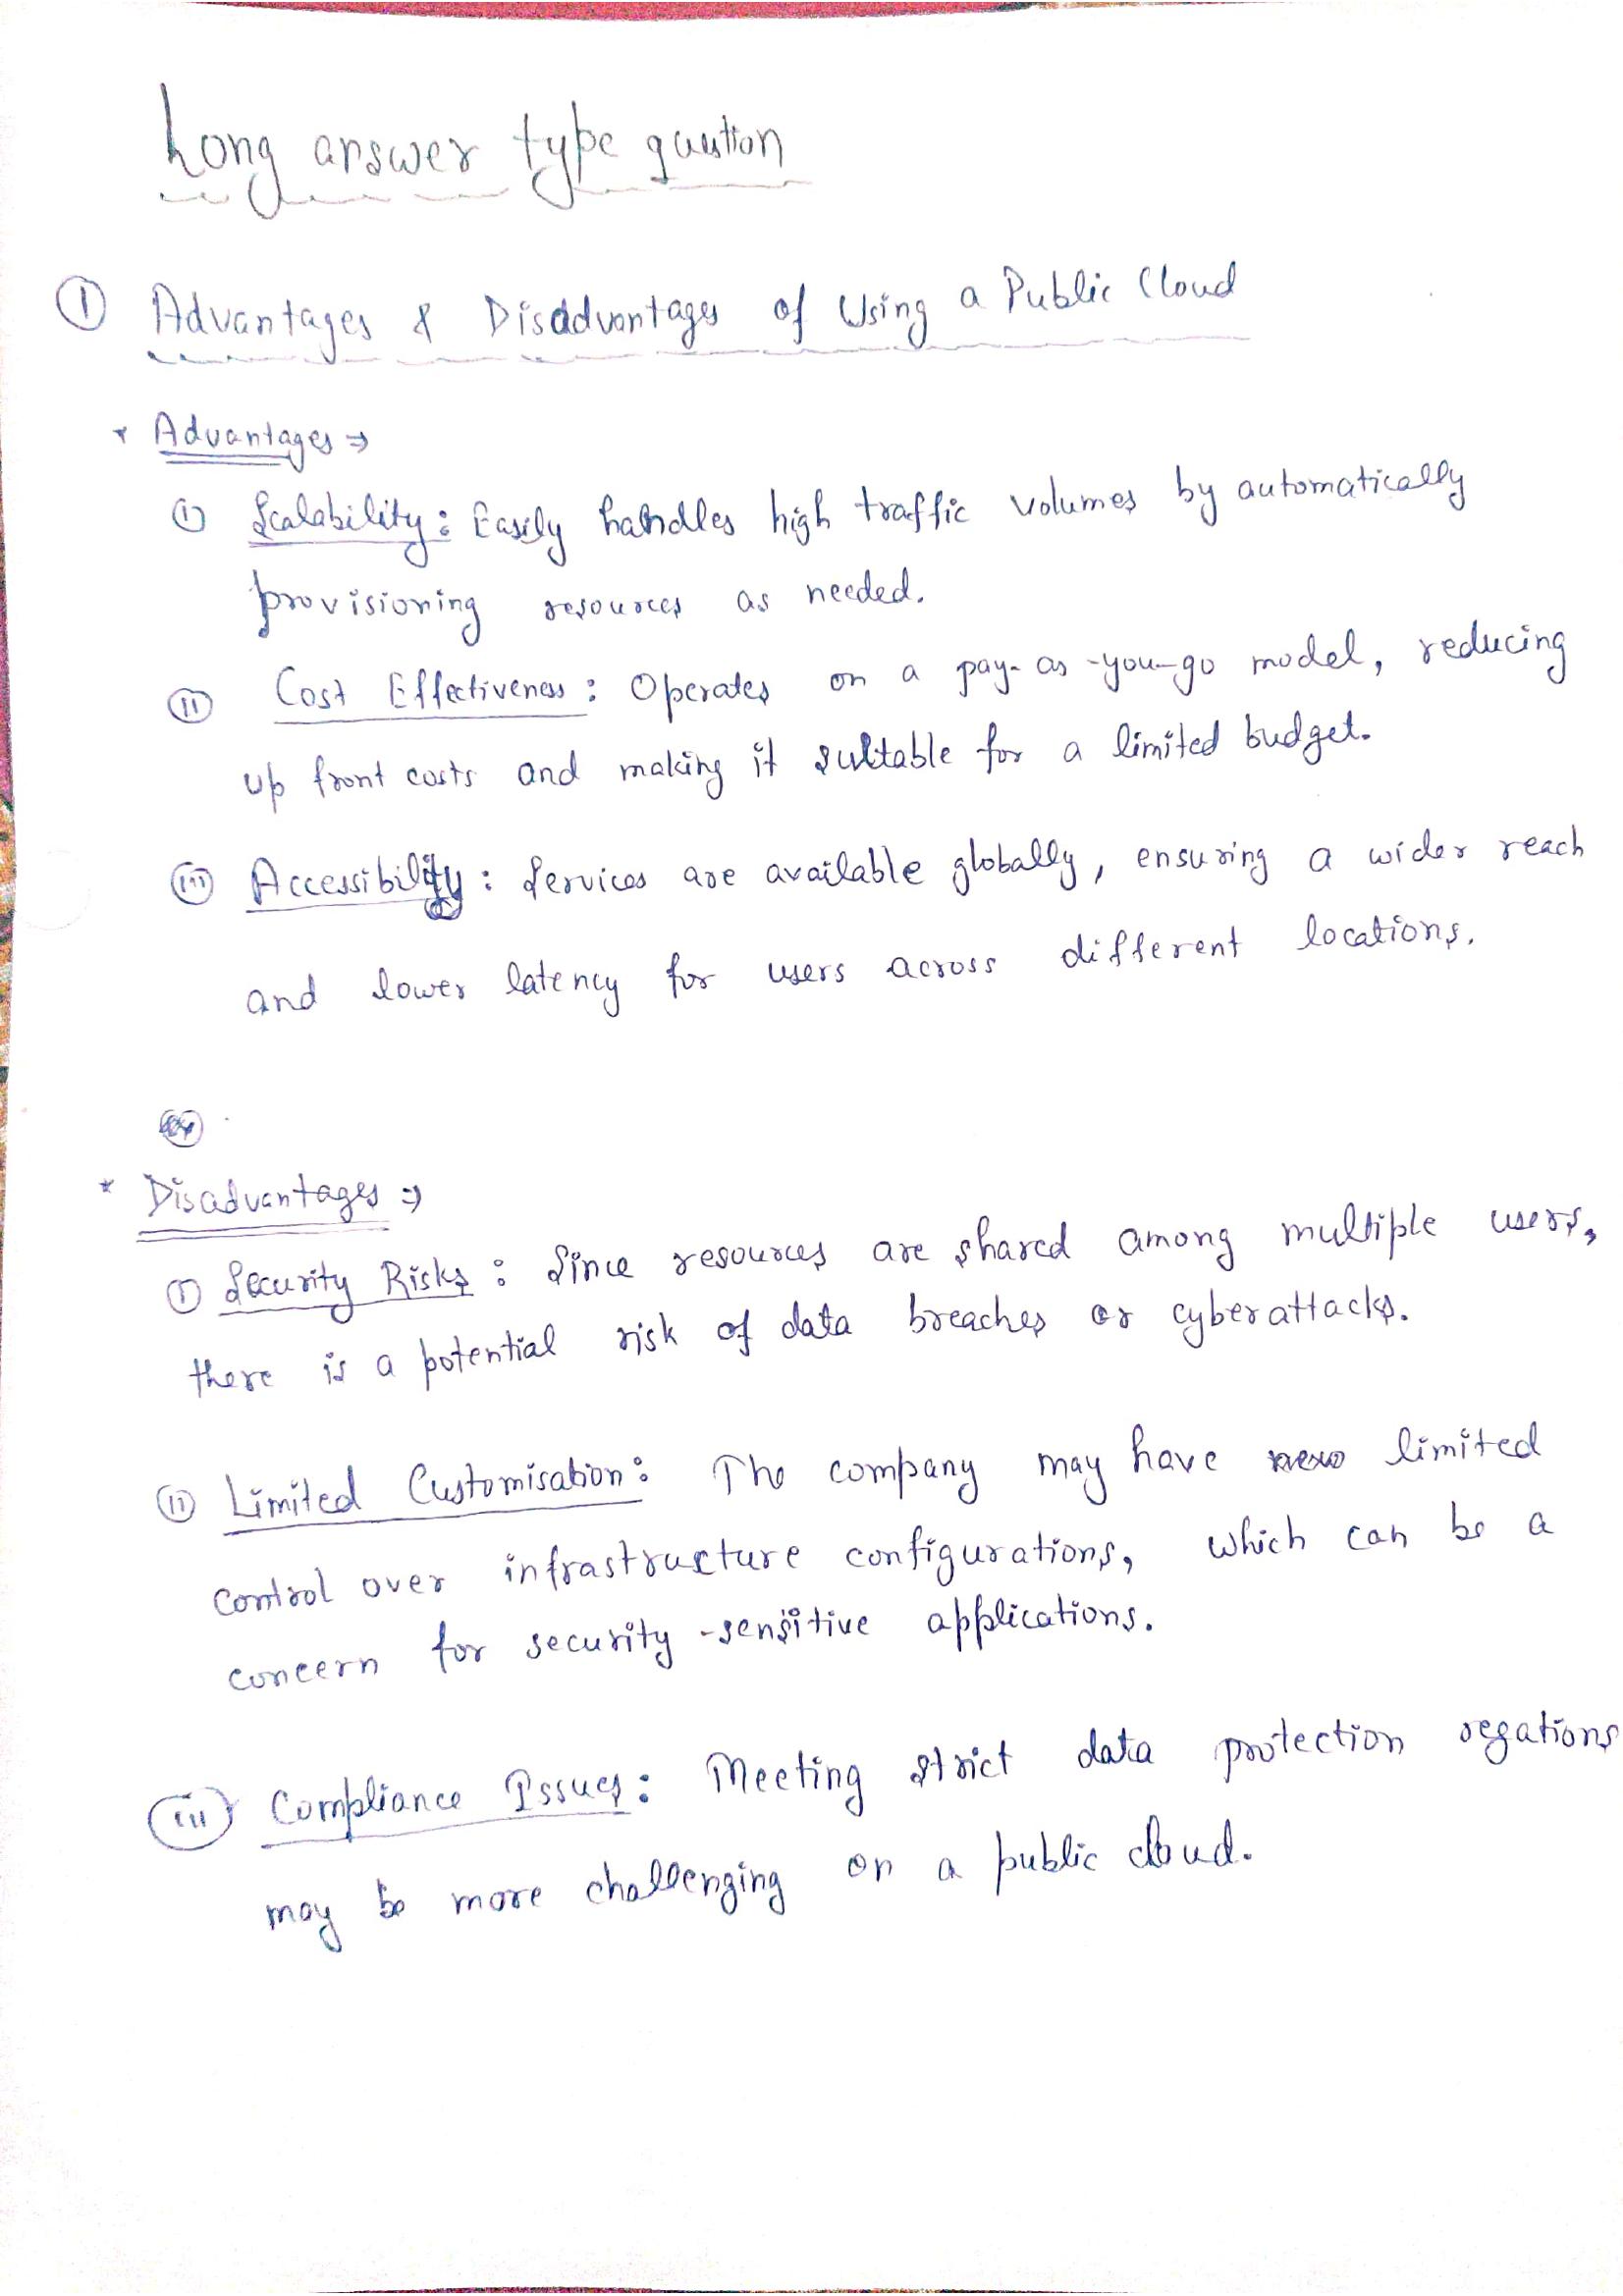 Long answer type question
① Advantages & Disadvantages of Using a Public Cloud
* Advantages ⇒
(i) Scalability: Easily handles high traffic volumes by automatically
provisioning resources as needed.
(ii) Cost Effectiveness: Operates on a pay-as-you-go model, reducing
up front costs and making it suitable for a limited budget.
(iii) Accessibility: Services are available globally, ensuring a wider reach
and lower latency for users across different locations.
* Disadvantages ⇒
(i) Security Risks: Since resources are shared among multiple users,
there is a potential risk of data breaches or cyberattacks.
(ii) Limited Customisation: The company may have limited
control over infrastructure configurations, which can be a
concern for security-sensitive applications.
(iii) Compliance Issues: Meeting strict data protection regations
may be more challenging on a public cloud.